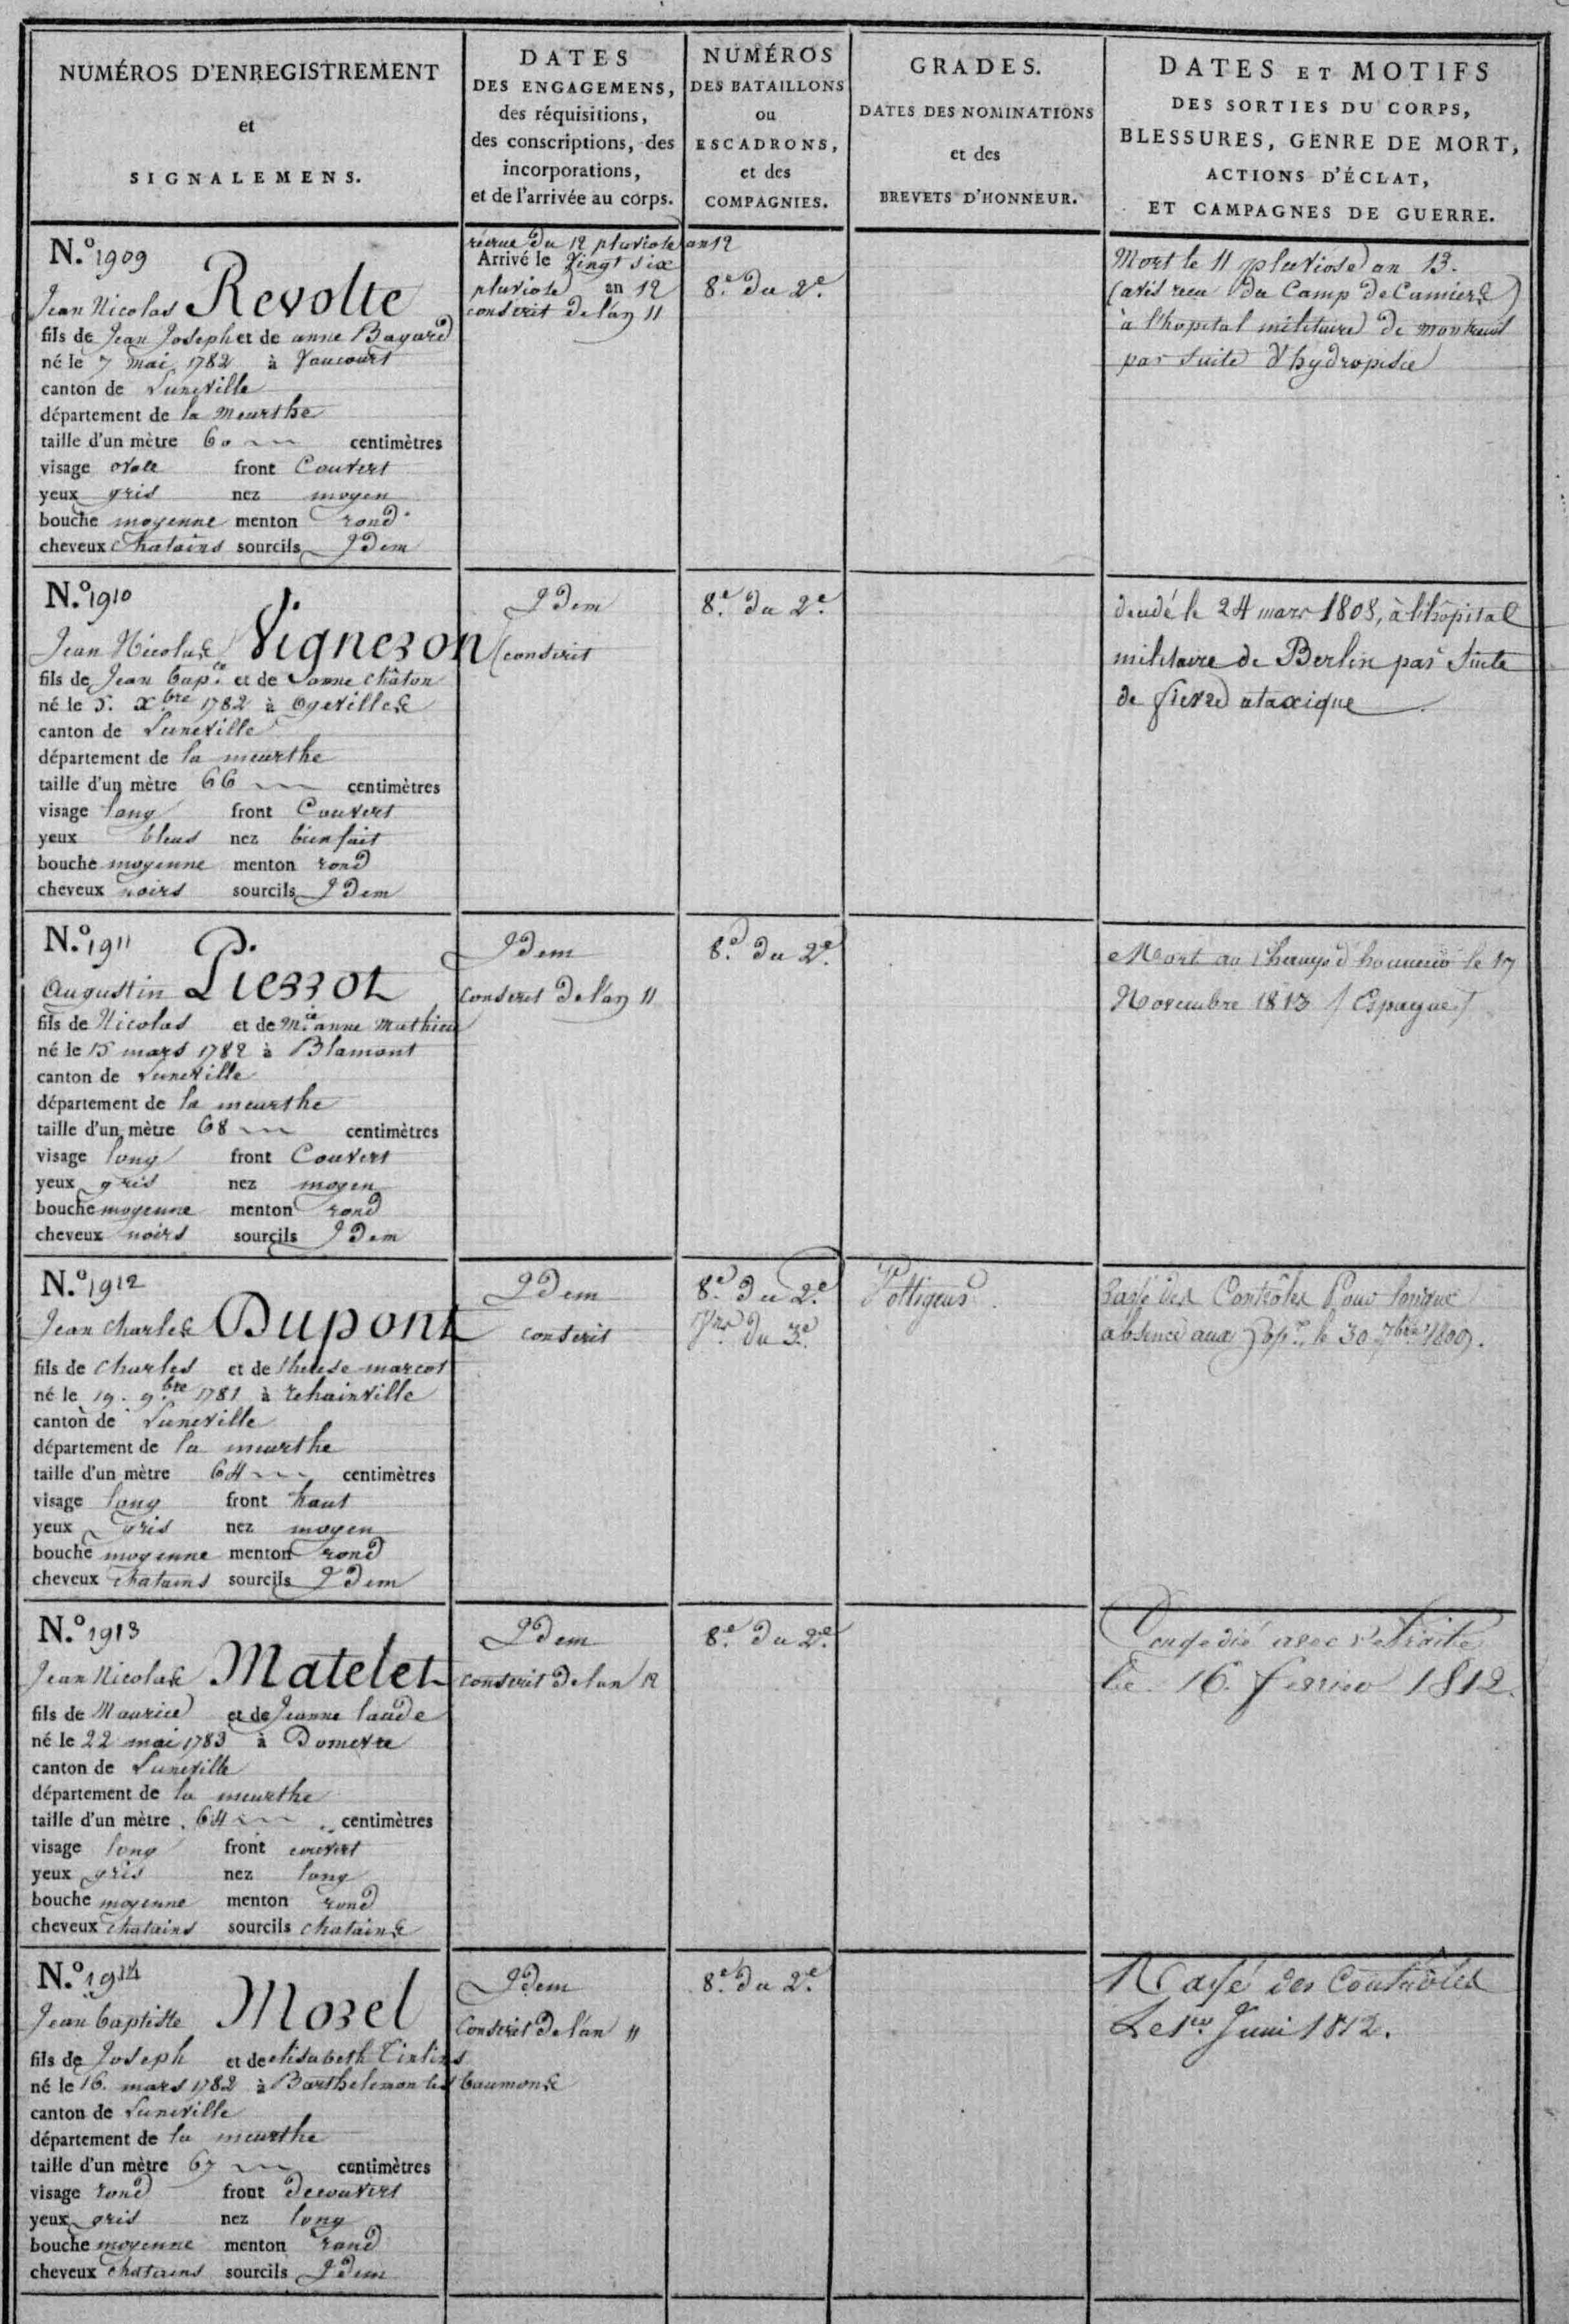 NUMÉROS D'ENREGISTREMENT
et
SIGNALEMENS.
DATES
DES ENGAGEMENS,
des réquisitions,
des conscriptions, des
incorporations,
et de l'arrivée au corps.
NUMÉROS
DES BATAILLONS
ou
ESCADRONS,
et des
COMPAGNIES.
GRADES.
DATES DES NOMINATIONS
et des
BREVETS D'HONNEUR.
DATES ET MOTIFS
DES SORTIES DU CORPS,
BLESSURES, GENRE DE MORT,
ACTIONS D'ÉCLAT,
ET CAMPAGNES DE GUERRE.
N.º 1909
Jean Nicolas Revolte
fils de Jean Joseph et de anne Bayard
né le 7 mai 1782 à
canton de Luneville
département de la meurthe
taille d'un mètre 60 centimètres
visage ovale front Couvert
yeux gris nez moyen
bouche moyenne menton rond
cheveux chatains sourcils Idem
du 12 pluviose an 12
Arrivé le vingt six
pluviose an 12
conscrit de l'an 11
8.e du 2.e
Mort le 11 pluviose an 13.
(avis recu du Camp de Camiers)
à l'hopital militaire de montreuil
par suite d'hydropisie
N.º 1910
Jean Nicolas Vigneron
fils de Jean bap.te et de anne châton
né le 5. xbre 1782 à Ogevilles
canton de Luneville
département de la meurthe
taille d'un mètre 66 centimètres
visage long front Couvert
yeux bleus nez bien fait
bouche moyenne menton rond
cheveux noirs sourcils Idem
Idem
conscrit
8.e du 2.e
décédé le 24 mars 1808, à l'hôpital
militaire de Berlin par suite
de fievre ataxique
N.º 1911
Augustin Pierrot
fils de Nicolas et de M.ie anne Mathieu
né le 15 mars 1782 à Blamont
canton de Luneville
département de la meurthe
taille d'un mètre 68 centimètres
visage long front Couvert
yeux gris nez moyen
bouche moyenne menton rond
cheveux noirs sourcils Idem
Idem
conscrit de l'an 11
8.e du 2.e
Mort au Champ d'honneur le 17
Novembre 1813 / Espagne /
N.º 1912
Jean charles Dupont
fils de charles et de therese marcot
né le 19. 9.bre 1781 à rehainville
canton de Luneville
département de la meurthe
taille d'un mètre 64 centimètres
visage long front haut
yeux gris nez moyen
bouche moyenne menton rond
cheveux chatains sourcils Idem
Idem
conscrit
8.e du 2.e
du 3.e
Voltigeur
Rayé des Contrôles Pour longue
absence aux hôp.x le 30 7bre 1809.
N.º 1913
Jean Nicolas Matelet
fils de Maurice et de Jeanne laude
né le 22 mai 1783 à Domevre
canton de Luneville
département de la meurthe
taille d'un mètre 64 centimètres
visage long front couvert
yeux gris nez long
bouche moyenne menton rond
cheveux chatains sourcils chatains
Idem
conscrit de l'an 12
8.e du 2.e
Congedié avec retraite
le 16 fevrier 1812.
N.º 1914
Jean baptiste Morel
fils de Joseph et de elisabeth
né le 16. mars 1782 à Barthelemon les baumons
canton de Luneville
département de la meurthe
taille d'un mètre 67 centimètres
visage rond front decouvert
yeux gris nez long
bouche moyenne menton rond
cheveux chatains sourcils Idem
Idem
Conscrit de l'an 11
8.e du 2.e
Rayé des Contrôles
Le 1er Juin 1812.